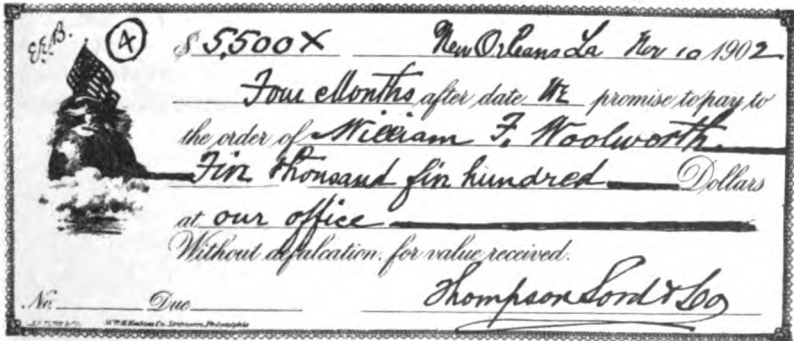 ④
$ 5,500 X New Orleans La Nov 10 1902
Four Months after date We promise to pay to
the order of William F. Woolworth
Five Thousand five hundred Dollars
at our office
Without defalcation, for value received.
Thompson Lord & Co
No. Due
Stationers, Philadelphia